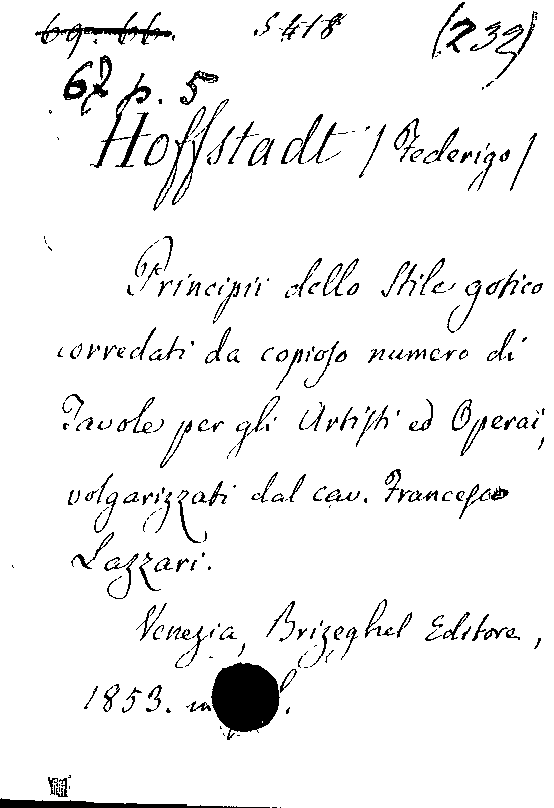 69. 66. S 418 (232)
67 p. 5
Hoffstadt / Federigo /
Principii dello Stile gotico
corredati da copioso numero di
Tavole per gli Artisti ed Operai,
volgarizzati dal cav. Francesco
Lazzari.
Venezia, Brizeghel Editore,
1853. in